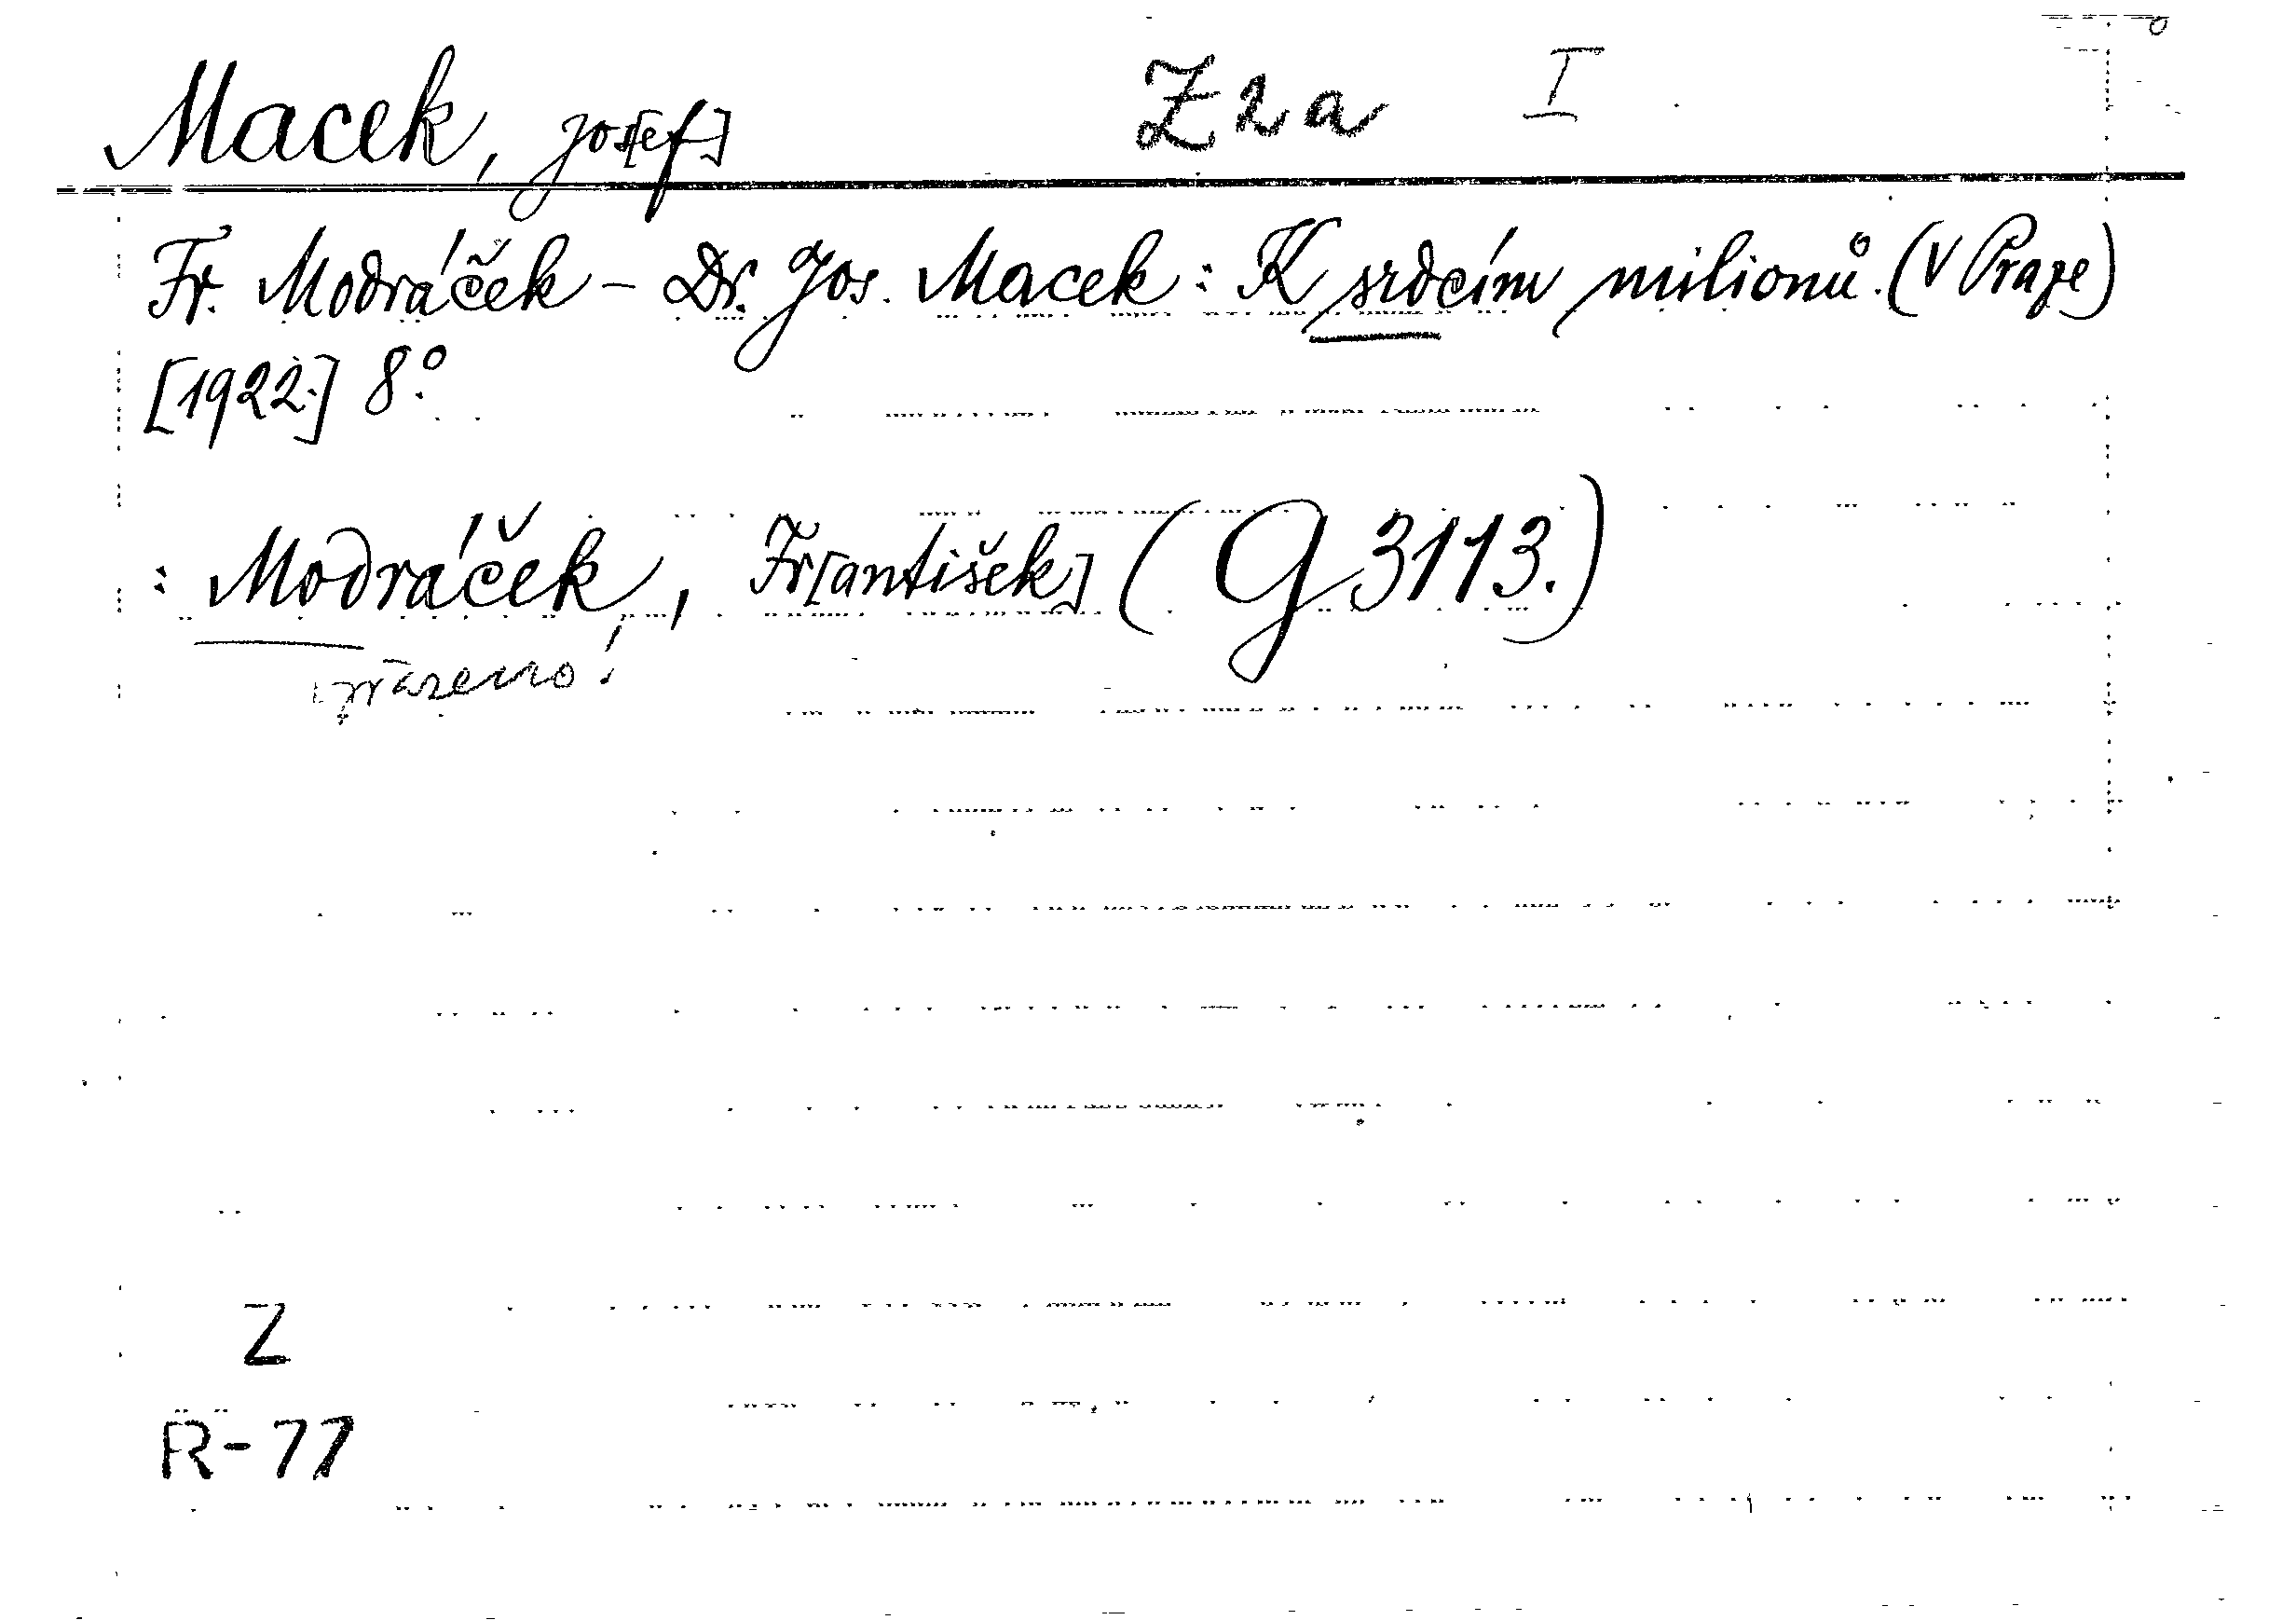 Macek, Jos[ef] Z2a I
Fr. Modráček - Dr. Jos. Macek: K srdcím milionů. (V Praze)
[1922.] 8°.
: Modráček, Fr[antišek] (G 3113.)
Z
R-77